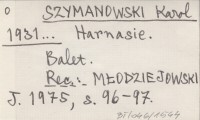 SZYMANOWSKI Karol
1931... Harnasie.
Balet.
Rec.: MŁODZIEJOWSKI
J. 1975, s. 96-97.